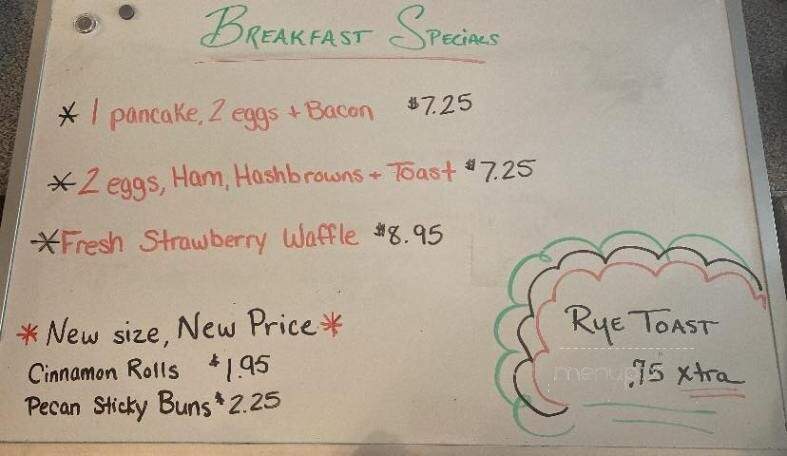 BREAKFAST SPECIALS
* 1 pancake, 2 eggs + Bacon $7.25
* 2 eggs, Ham, Hashbrowns + Toast $7.25
* Fresh Strawberry Waffle $8.95
* New size, New Price *
Cinnamon Rolls $1.95
Pecan Sticky Buns $2.25
RYE TOAST
.75 xtra